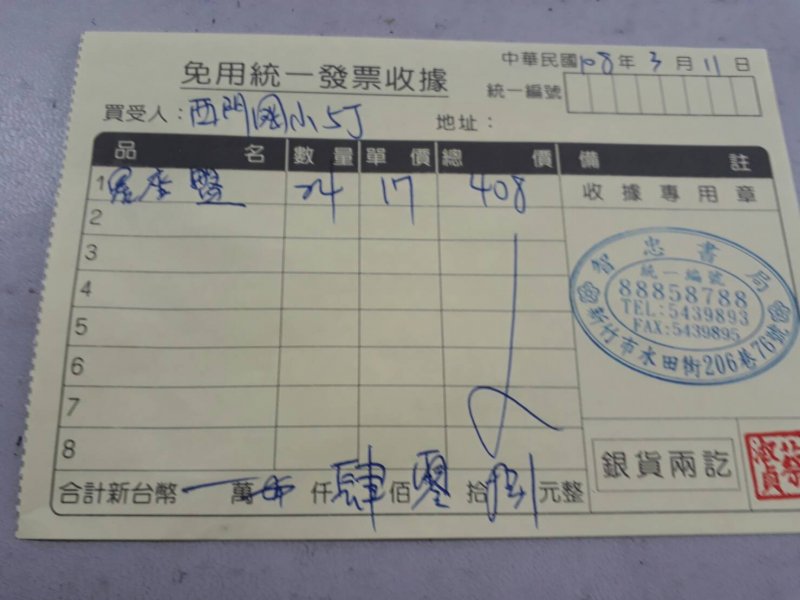 免用統一發票收據
中華民國108年3月11日
統一編號
買受人：西門國小5J
地址：
品名 數量 單價 總價 備註
1 星座盤 24 17 408
收據專用章
2
3
4
5
6
7
8
智忠書局
統一編號
88858788
TEL:5439893
FAX:5439895
新竹市水田街206巷76號
銀貨兩訖
合計新台幣 萬 仟肆佰零拾捌元整